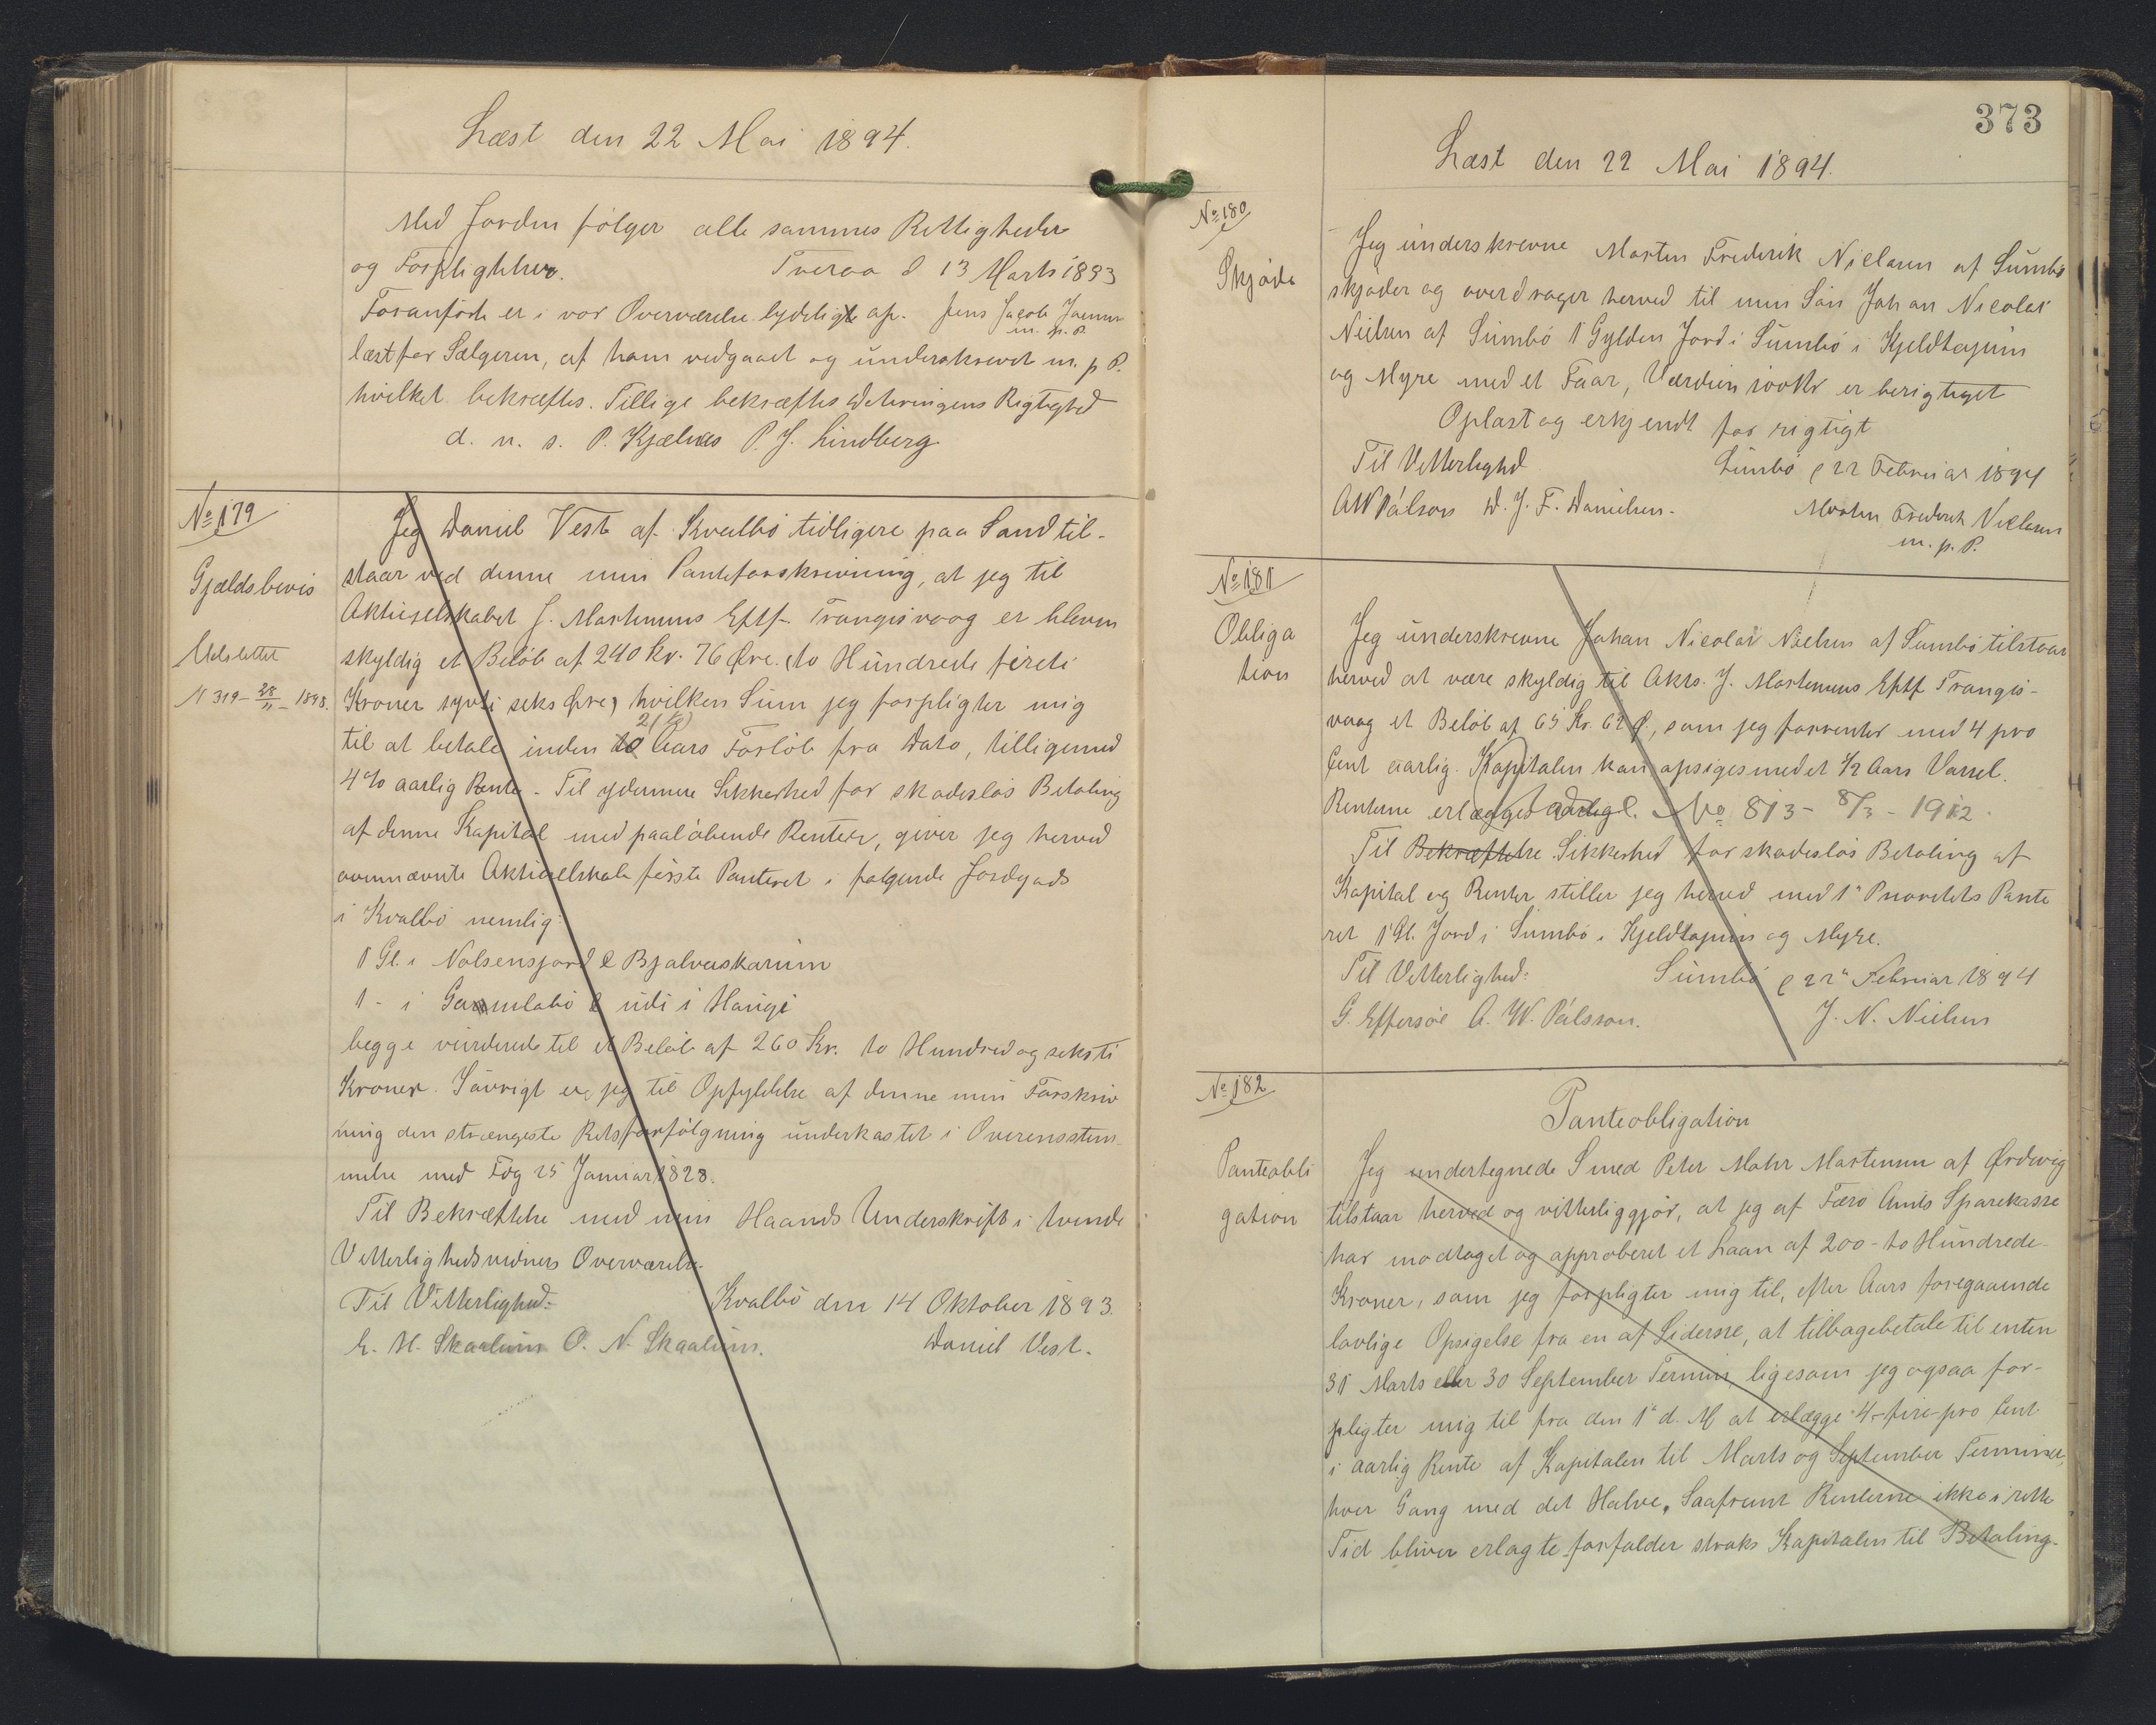 Læst den 22 Mai 1894.
Med Jorden følger alle sammes Rettigheder
og Forpligtelser. Tveraa d 13 Marts 1893
Foranførte er i vor Overværelse lydeligt op- Jens Jacob Joensen
m. p. P.
læst for Sælgeren, af ham vedgaaet og underskrevet m. p P.
hvilket bekræftes. Tillige bekræftes Dateringens Rigtighed
d. u. s. P. Kjælnes P. J. Lindberg
No 179
Gjældsbevis
Udslettet
N 319 - 28/11 - 1898.
Jeg Daniel Vest af Kvalbø tidligere paa Sand til-
staar ved denne min Panteforskrivning, at jeg til
Aktieselskabet J. Mortensens Eftf. Trangisvaag er bleven
skyldig et Beløb af 240 Kr. 76 Øre (to Hundrede fireti
Kroner syvti seks Øre) hvilken Sum jeg forpligter mig
2 (to)
til at betale inden Aars Forløb fra Dato, tilligemed
4% aarlig Rente. Til ydermere Sikkerhed for skadesløs Betaling
af denne Kapital med paaløbende Renter, giver jeg herved
ovennævnte Aktieselskab første Panteret i følgende Jordgods
i Kvalbø nemlig:
1 Gl. i Nolsensjord & Bjalveskarum
1 - i Gammlabø & udi i Haugi
begge vurderede til et Beløb af 260 Kr. to Hundred og seksti
Kroner. Iøvrigt er jeg til Opfyldelse af denne min Forskriv
ning den strængeste Retsforfølgning underkastet i Overensstem-
melse med Fdg 25 Januar 1828.
Til Bekræftelse med min Haands Underskrift i tvende
Vitterlighedsvidners Overværelse.
Til Vitterlighed: Kvalbø den 14 Oktober 1893.
E. H. Skaalum O. N. Skaalum. Daniel Vest.
373
Læst den 22 Mai 1894.
No 180
Skjøde
Jeg underskrevne Morten Frederik Nielsen af Sumbø
skjøder og overdrager herved til min Søn Johan Nicolai
Nielsen af Sumbø 1 Gylden Jord i Sumbø i Kjeldtapum
og Myre med et Faar, Værdien 100 Kr er berigtiget
Oplæst og erkjendt for rigtigt
Til Vitterlighed Sumbø p 22 Februar 1894
AW Pálson D. J. F. Danielsen. Morten Frederik Nielsen
m. p. P.
No 181
Obliga
tion
Jeg underskrevne Johan Nicolai Nielsen af Sumbø tilstaar
herved at være skyldig til Akts. J. Mortensens Eftf Trangis-
vaag et Beløb af 65 Kr. 62 Ø., som jeg forrenter med 4 pro
Cent aarlig. Kapitalen kan opsiges med et 1/2 Aars Varsel.
Renterne erlægges aarligt. No 813 - 8/3 - 1912.
Til Bekræftelse Sikkerhed for skadesløs Betaling af
Kapital og Renter stiller jeg herved med 1ste Prioritets Pante
ret 1 Gl. Jord i Sumbø i Kjeldtapum og Myre.
Til Vitterlighed: Sumbø p 22 Februar 1894
G. Effersøe A. W. Pálsson. J. N. Nielsen
No 182
Panteobli
gation
Panteobligation
Jeg undertegnede Smed Peter Mohr Mortensen af Ørdevig
tilstaar herved og vitterliggjør, at jeg af Færø Amts Sparekasse
har modtaget og approberet et Laan af 200 - to Hundrede
Kroner, som jeg forpligter mig til, efter Aars foregaaende
lovlige Opsigelse fra en af Siderne, at tilbagebetale til enten
31 Marts eller 30 September Termin, ligesom jeg ogsaa for-
pligter mig til fra den 1ste d. M at erlægge 4 - fire - pro Cent
i aarlig Rente af Kapitalen til Marts og September Terminer,
hver Gang med det Halve. Saafremt Renterne ikke i rette
Tid bliver erlagte forfalder straks Kapitalen til Betaling.